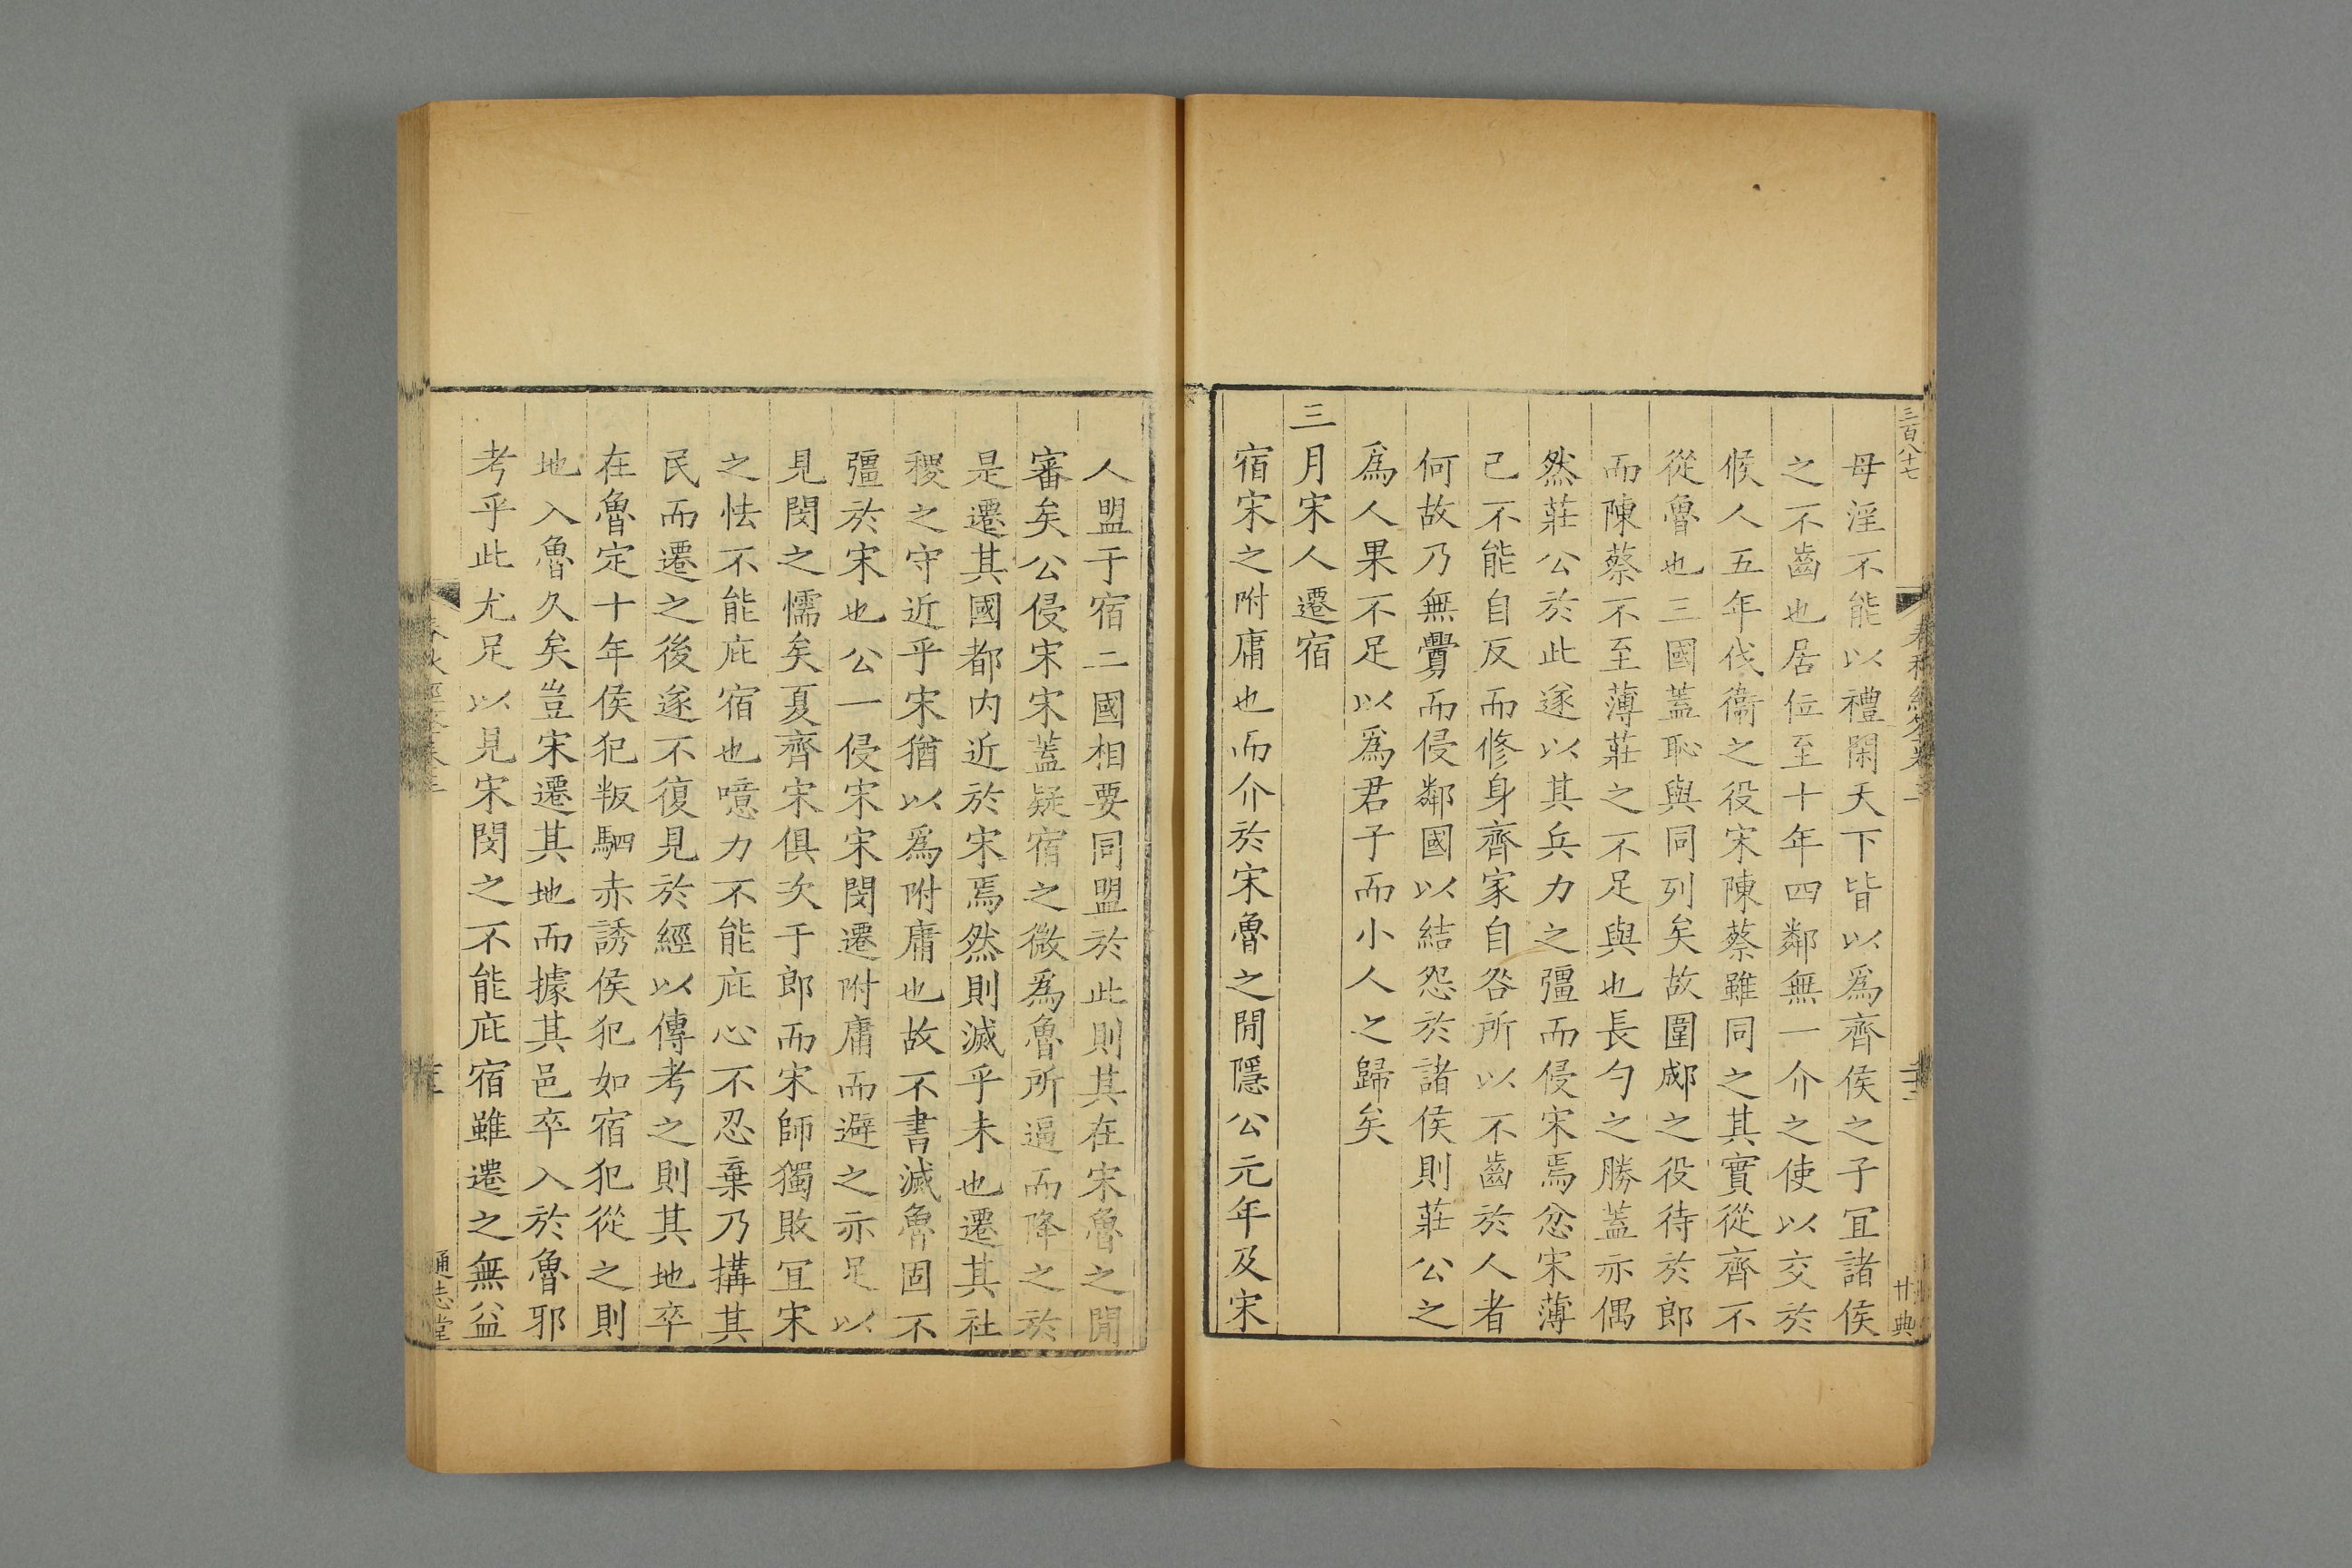 三百八十七
母淫不能以禮閑天下皆以爲齊侯之子宜諸侯
之不齒也居位至十年四鄰無一介之使以交於
候人五年伐衞之役宋陳蔡雖同之其實從齊不
從魯也三國蓋恥與同列矣故圍郕之役待於郎
而陳蔡不至薄莊之不足與也長勺之勝蓋亦偶
然莊公於此遂以其兵力之彊而侵宋焉忿宋薄
己不能自反而修身齊家自咎所以不齒於人者
何故乃無釁而侵鄰國以結怨於諸侯則莊公之
爲人果不足以爲君子而小人之歸矣
三月宋人遷宿
宿宋之附庸也而介於宋魯之閒隱公元年及宋
人盟于宿二國相要同盟於此則其在宋魯之閒
審矣公侵宋宋蓋疑宿之微爲魯所逼而降之於
是遷其國都内近於宋焉然則滅乎未也遷其社
稷之守近乎宋猶以爲附庸也故不書滅魯固不
彊於宋也公一侵宋宋閔遷附庸而避之亦足以
見閔之懦矣夏齊宋俱次于郎而宋師獨敗宜宋
之怯不能庇宿也噫力不能庇心不忍棄乃搆其
民而遷之後遂不復見於經以傳考之則其地卒
在魯定十年侯犯叛駟赤誘侯犯如宿犯從之則
地入魯久矣豈宋遷其地而據其邑卒入於魯邪
考乎此尤足以見宋閔之不能庇宿雖遷之無益
通志堂